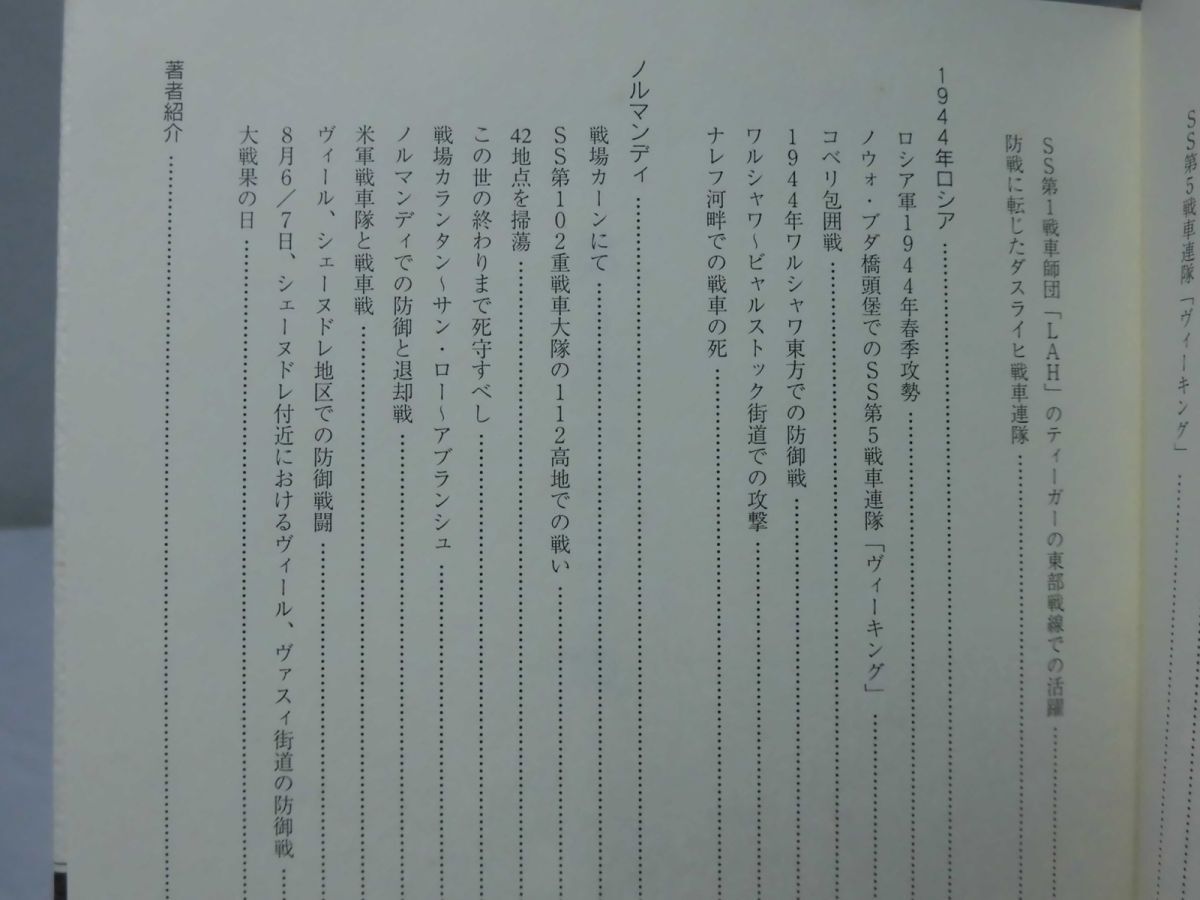 SS第5戦車連隊「ヴィーキング」
SS第1戦車師団「LAH」のティーガーの東部戦線での活躍
防戦に転じたダスライヒ戦車連隊
1944年ロシア
ロシア軍1944年春季攻勢
ノウォ・ブダ橋頭堡でのSS第5戦車連隊「ヴィーキング」
コベリ包囲戦
1944年ワルシャワ東方での防御戦
ワルシャワ～ビャルストック街道での攻撃
ナレフ河畔での戦車の死
ノルマンディ
戦場カーンにて
SS第102重戦車大隊の112高地での戦い
42地点を掃蕩
この世の終わりまで死守すべし
戦場カランタン～サン・ロー～アブランシュ
ノルマンディでの防御と退却戦
米軍戦車隊と戦車戦
ヴィール、シェーヌドレ地区での防御戦闘
8月6/7日、シェーヌドレ付近におけるヴィール、ヴァスィ街道の防御戦
大戦果の日
著者紹介